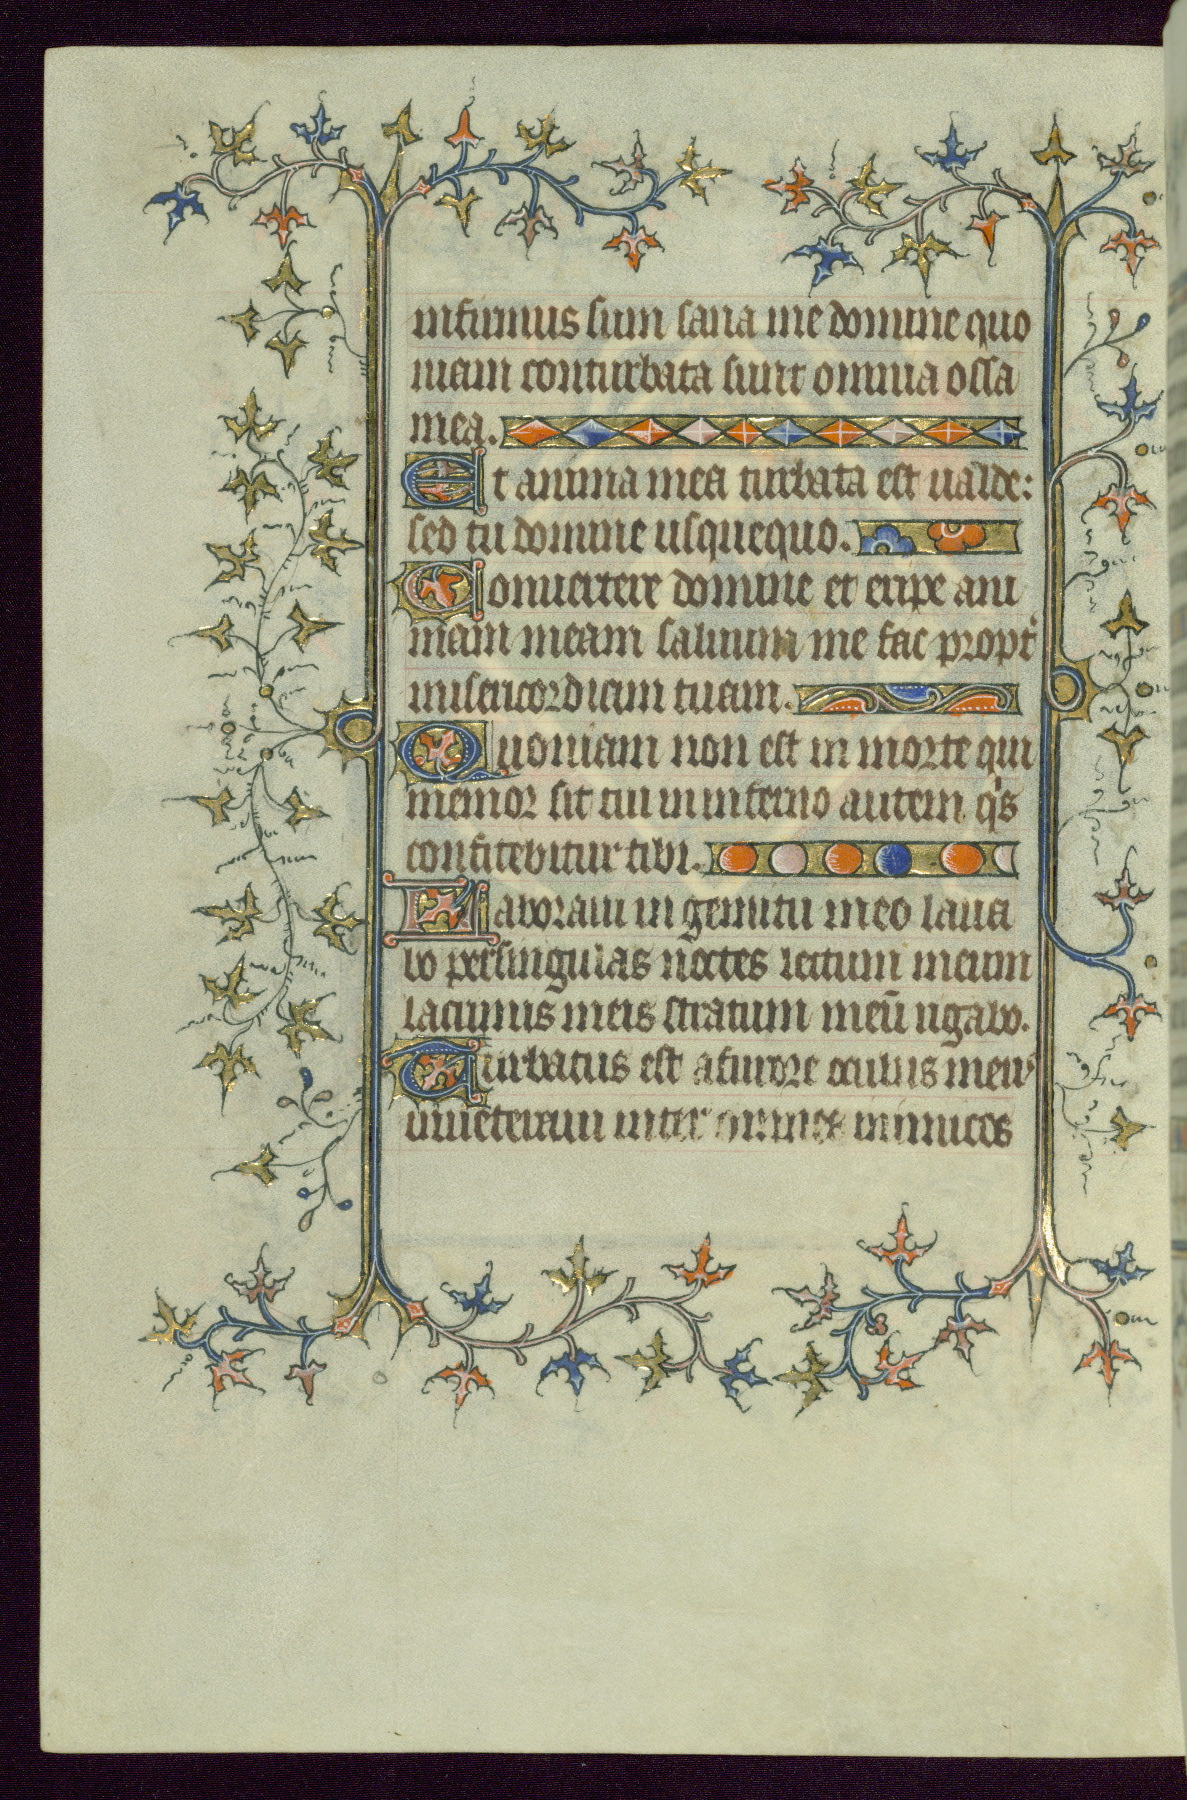 infirmus sum sana me domine quo
niam conturbata sunt omnia ossa
mea.
Et anima mea turbata est ualde:
sed tu domine usquequo.
Conuertere domine et eripe ani
mam meam saluum me fac propt'
misericordiam tuam.
Quoniam non est in morte qui
memor sit tui in inferno autem q's
confitebitur tibi.
Laboraui in gemitu meo laua
bo per singulas noctes lectum meum
lacrimis meis stratum meū rigabo.
Turbatus est a furore oculus meus
inueteraui inter omnes inimicos